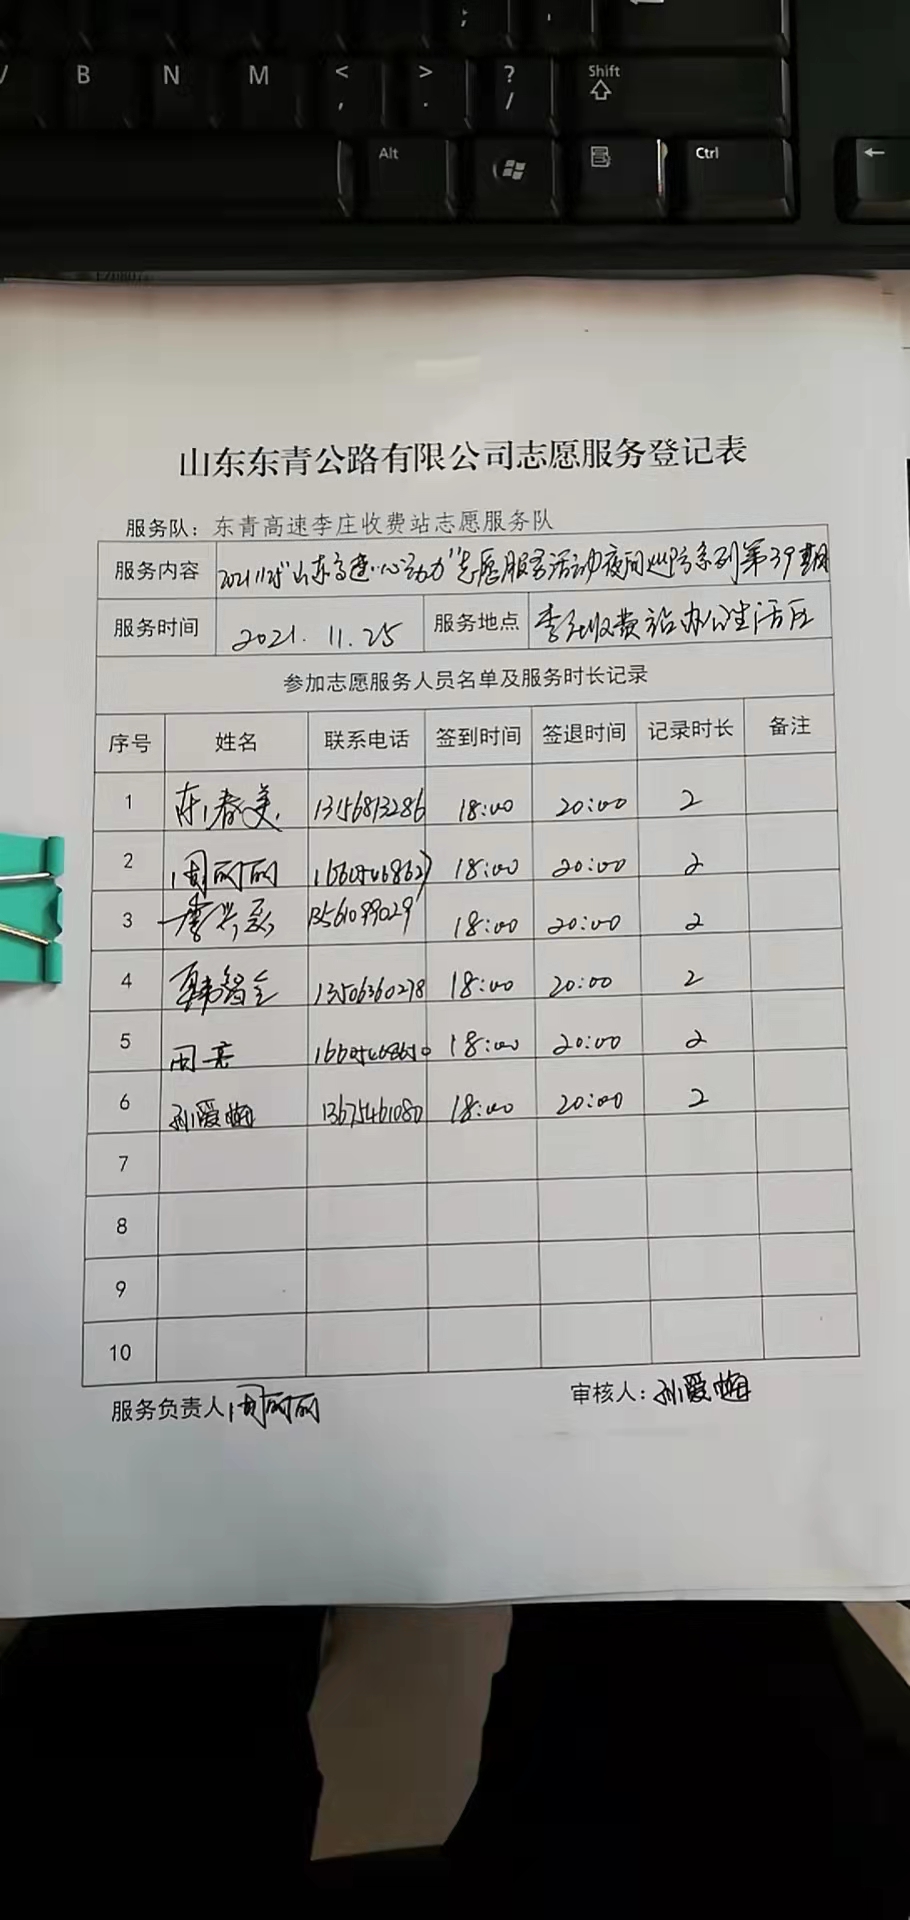 B N M < , > . ? / Shift
Alt Ctrl
山东东青公路有限公司志愿服务登记表
服务队：东青高速李庄收费站志愿服务队
服务内容 20211125"山东高速·心动力"志愿服务活动夜间巡防系列第39期
服务时间 2021.11.25 服务地点 李庄收费站办公生活区
参加志愿服务人员名单及服务时长记录
序号 姓名 联系电话 签到时间 签退时间 记录时长 备注
1 春美 13156813286 18:00 20:00 2
2 周丽丽 18:00 20:00 2
3 李兴 13561099029 18:00 20:00 2
4 韩智全 13506360278 18:00 20:00 2
5 周亮 18:00 20:00 2
6 孙爱梅 13675461080 18:00 20:00 2
7
8
9
10
服务负责人周丽丽 审核人：孙爱梅